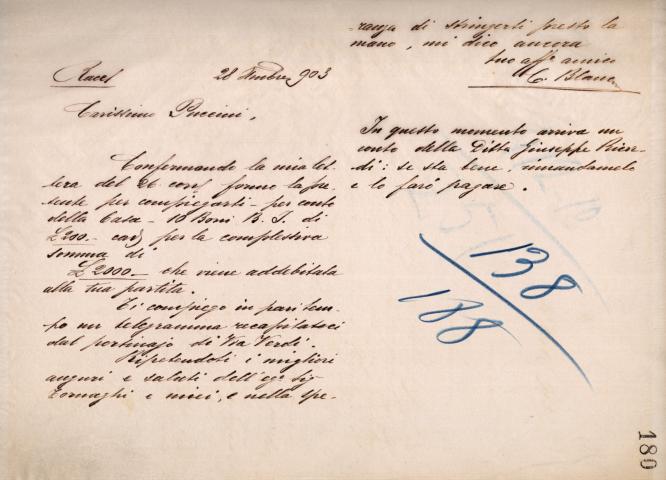 Racc
28 Xmbre 903
Carissimo Puccini,
Confermando la mia let-
tera del 26 corr formo la pre-
sente per compiegarti - per conto
della Casa - 10 Boni B. I. di
£ 200.- cad per la complessiva
somma di
£ 2000.- che viene addebitata
alla tua partita.
Ti compiego in pari tem-
po un telegramma recapitatoci
dal portinajo di Via Verdi.
Ripetendoti i migliori
auguri e saluti dell'eg. Sig
Tornaghi e miei, e nella spe-
ranza di stringerti presto la
mano, mi dico ancora
tuo aff. amico
C. Blanc
In questo momento arriva un
conto della Ditta Giuseppe
di: se sta bene, rimandamelo
e lo farò pagare.
138
188
180